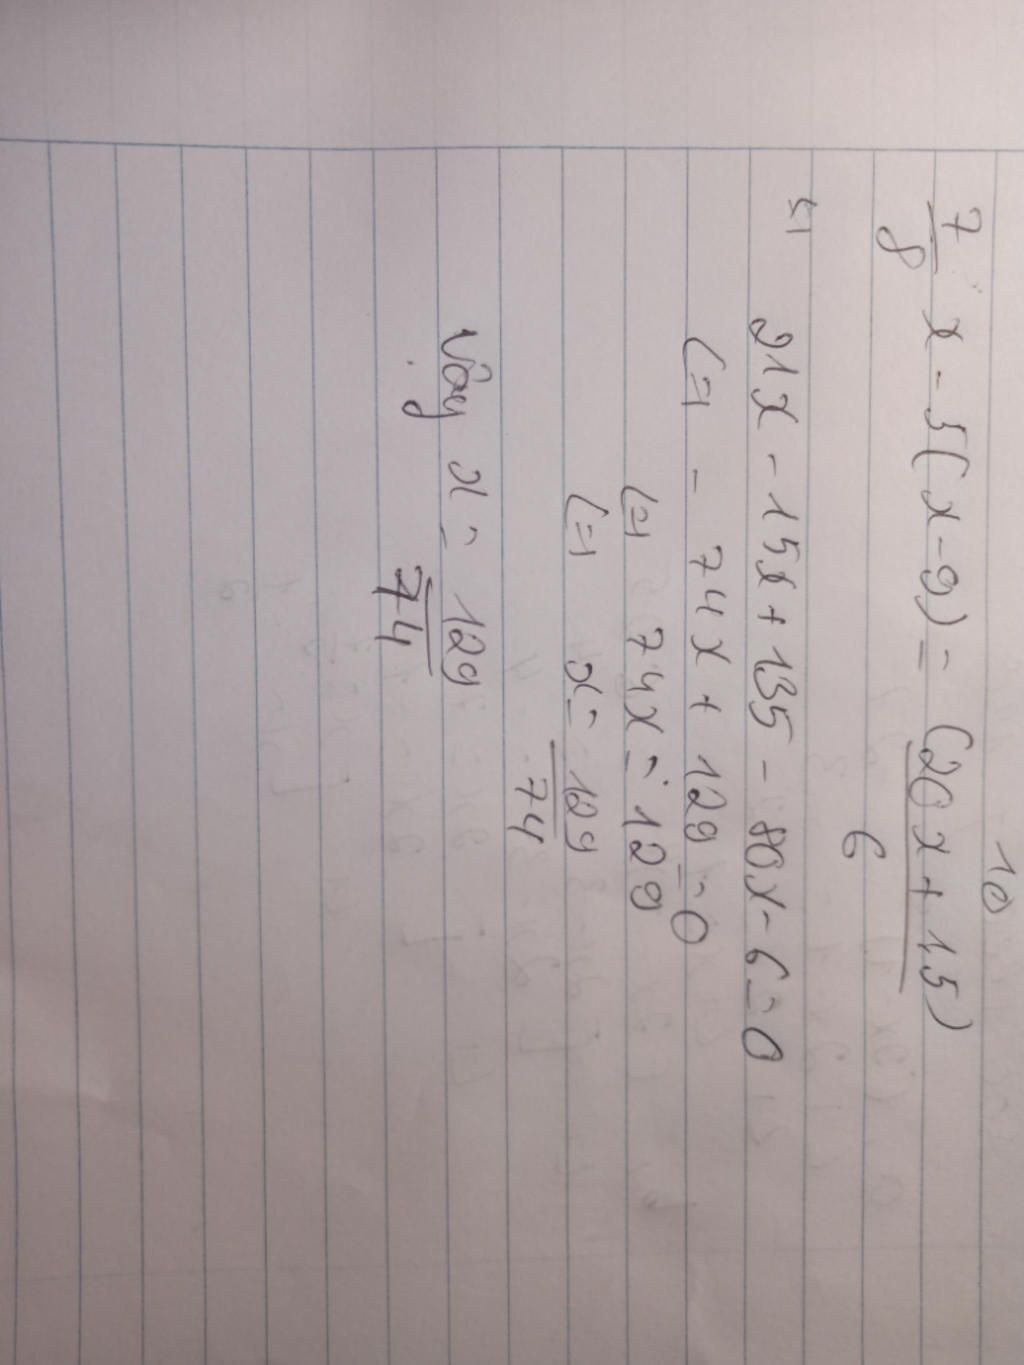 10
7/8 x - 5(x-9) = (20x+15)/6
<=> 21x - 15x + 135 - 80x - 6 = 0
<=> - 74x + 129 = 0
<=> 74x = 129
<=> x = 129/74
Vậy x = 129/74